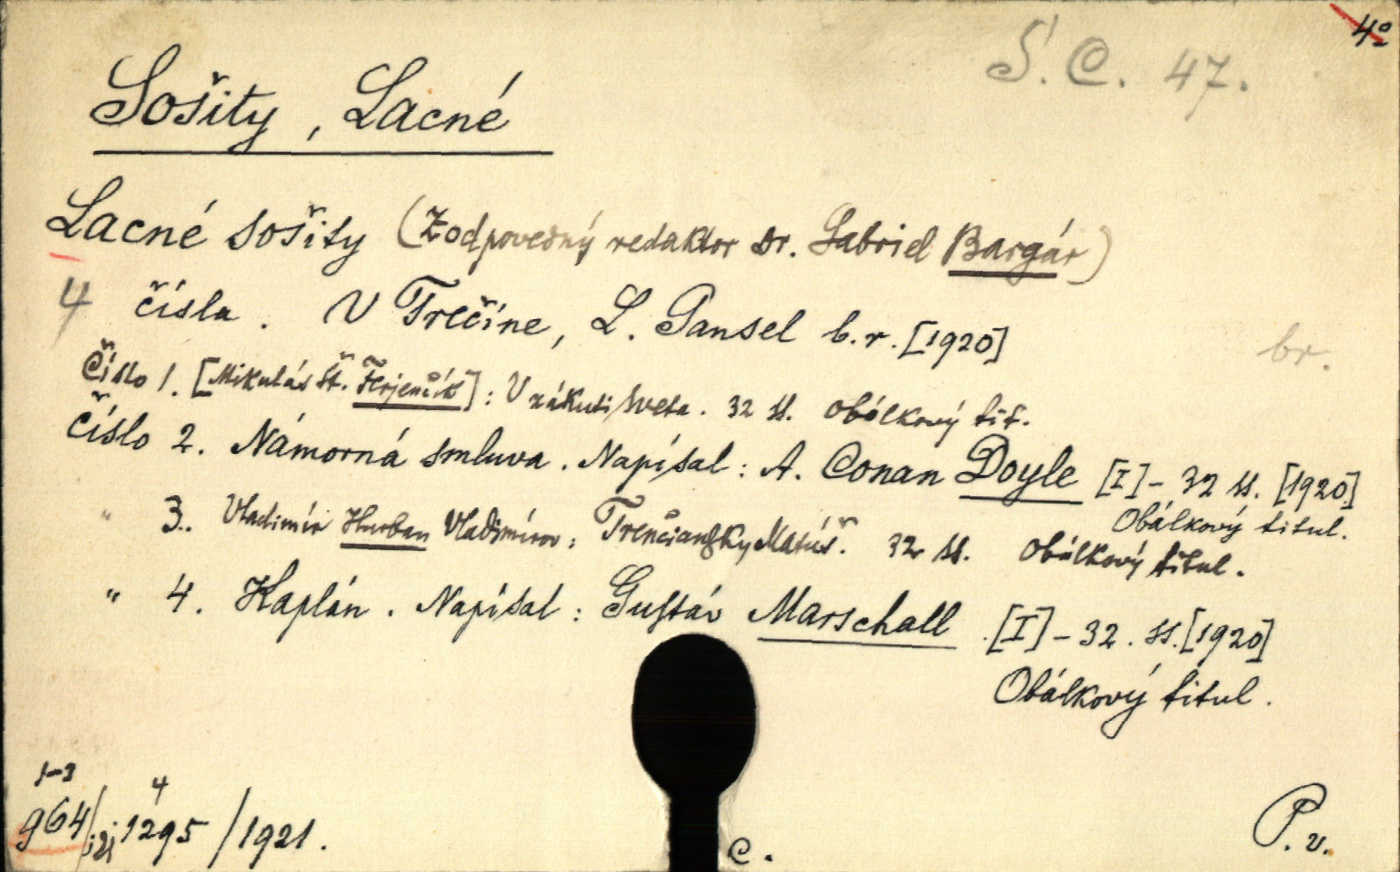 4°
S. C. 47.
Sošity, Lacné
Lacné sošity (Zodpovedný redaktor Dr. Gabriel Bargár)
4 čísla. V Trečíne, L. Gansel b. r. [1920]
br.
Číslo 1. [Mikuláš Št. Ferjenčík]: V zákutí sveta. 32 ss. Obálkový tit.
Číslo 2. Námorná smluva. Napísal: A. Conan Doyle [I]-32 ss. [1920]
Obálkový titul.
" 3. Vladimír Hurban Vladimírov: Trenčiansky Matúš. 32 ss. Obálkový titul.
" 4. Kaplán. Napísal: Gustáv Marschall. [I]-32. ss. [1920]
Obálkový titul.
1-3 4
964/21 1295/1921.
C.
P. v.